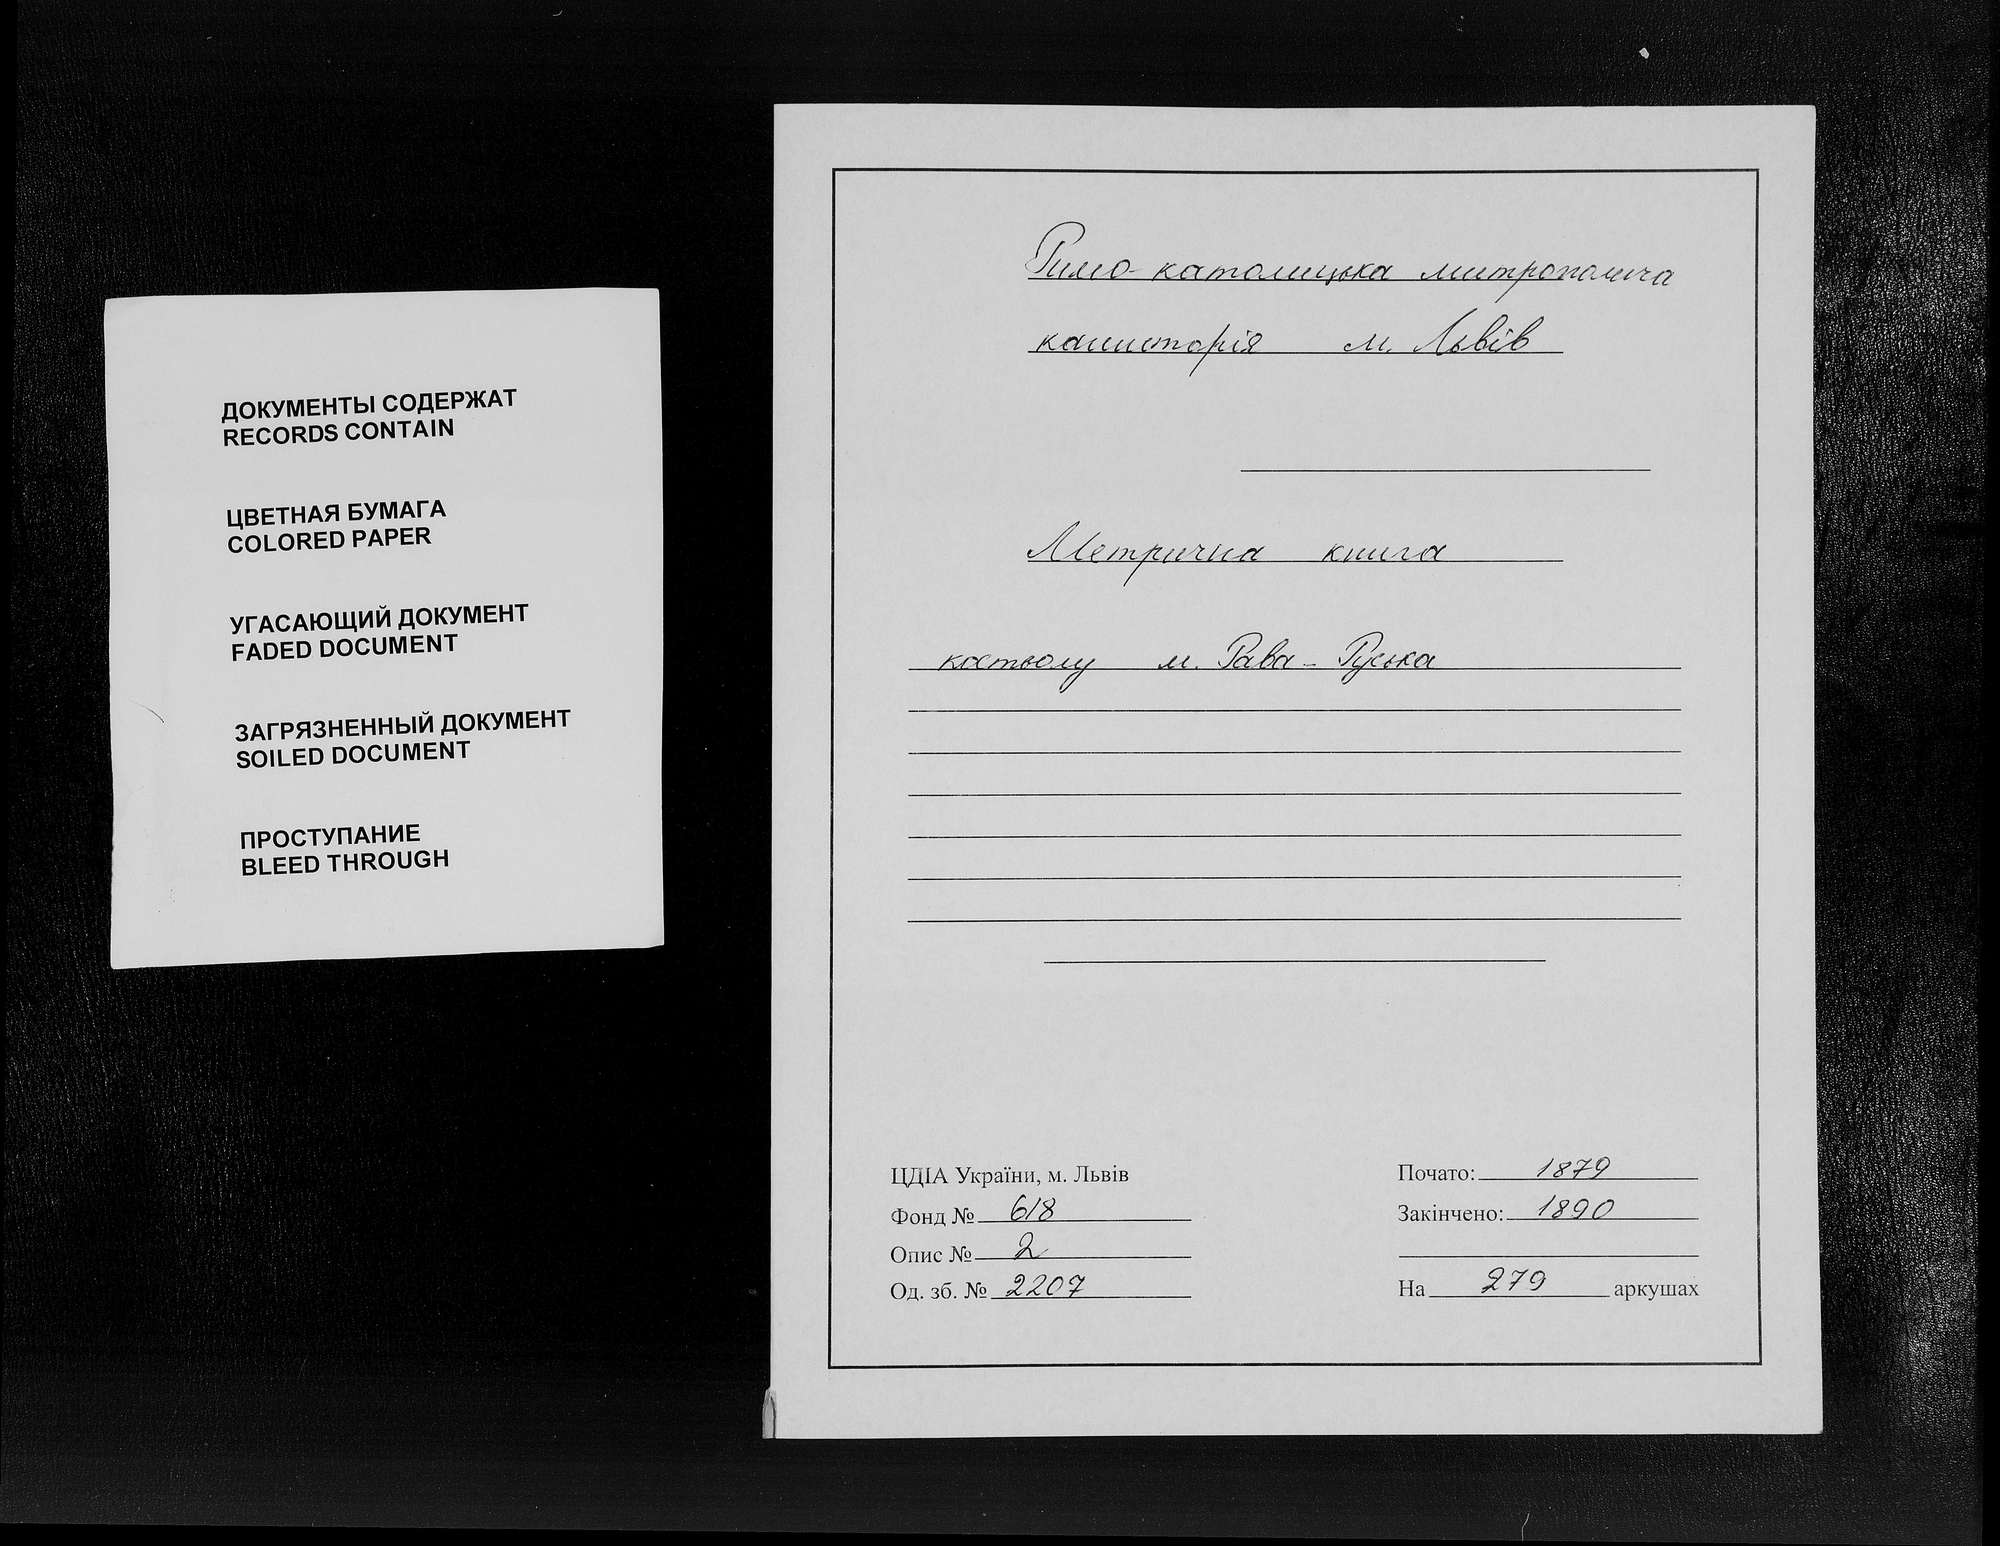 ДОКУМЕНТЫ СОДЕРЖАТ
RECORDS CONTAIN
ЦВЕТНАЯ БУМАГА
COLORED PAPER
УГАСАЮЩИЙ ДОКУМЕНТ
FADED DOCUMENT
ЗАГРЯЗНЕННЫЙ ДОКУМЕНТ
SOILED DOCUMENT
ПРОСТУПАНИЕ
BLEED THROUGH
Римо-католицька митрополича
консисторія м. Львів
Метрична книга
костьолу м. Рава-Руська
ЦДІА України, м. Львів
Фонд № 618
Опис № 2
Од. зб. № 2207
Почато: 1879
Закінчено: 1890
На 279 аркушах